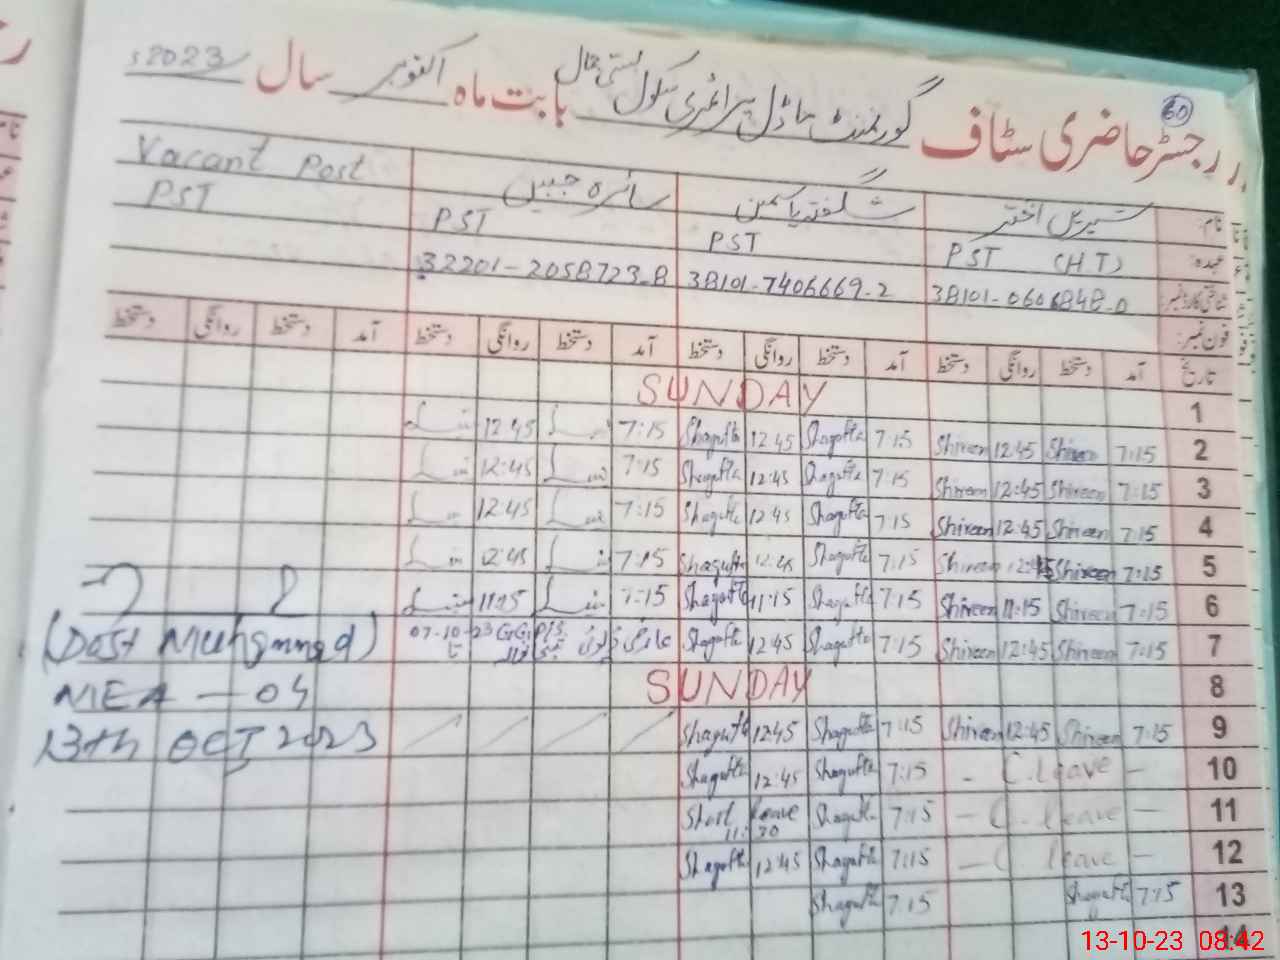 60
رجسٹر حاضری سٹاف گورنمنٹ ماڈل پرائمری سکول بستی جال بابت ماہ اکتوبر سال 2023ء
نام: شیریں اختر شگفتہ یاسمین سائرہ جبیں Vacant Post
عہدہ: PST (H.T) PST PST PST
شناختی کارڈ نمبر: 38101-0606848-0 38101-7406669-2 32201-2058723-8
فون نمبر:
تاریخ آمد دستخط روانگی دستخط آمد دستخط روانگی دستخط آمد دستخط روانگی دستخط آمد دستخط روانگی دستخط
1 SUNDAY
2 7:15 Shireen 12:45 Shireen 7:15 Shagufta 12:45 Shagufta 7:15 12:45
3 7:15 Shireen 12:45 Shireen 7:15 Shagufta 12:45 Shagufta 7:15 12:45
4 7:15 Shireen 12:45 Shireen 7:15 Shagufta 12:45 Shagufta 7:15 12:45
5 7:15 Shireen 12:45 Shireen 7:15 Shagufta 12:45 Shagufta 7:15 12:45
6 7:15 Shireen 11:15 Shireen 7:15 Shagufta 11:15 Shagufta 7:15 11:15
7 7:15 Shireen 12:45 Shireen 7:15 Shagufta 12:45 Shagufta 07-10-23
8 SUNDAY
9 7:15 Shireen 12:45 Shireen 7:15 Shagufta 12:45 Shagufta
10 - C.leave - 7:15 Shagufta 12:45 Shagufta
11 - C.leave - 7:15 Shagufta Short leave 11:30
12 - C.leave - 7:15 Shagufta 12:45 Shagufta
13 7:15 Shagufta 7:15 Shagufta
14
(Dost Muhammad)
MEA - 04
13th OCT 2023
13-10-23 08:42